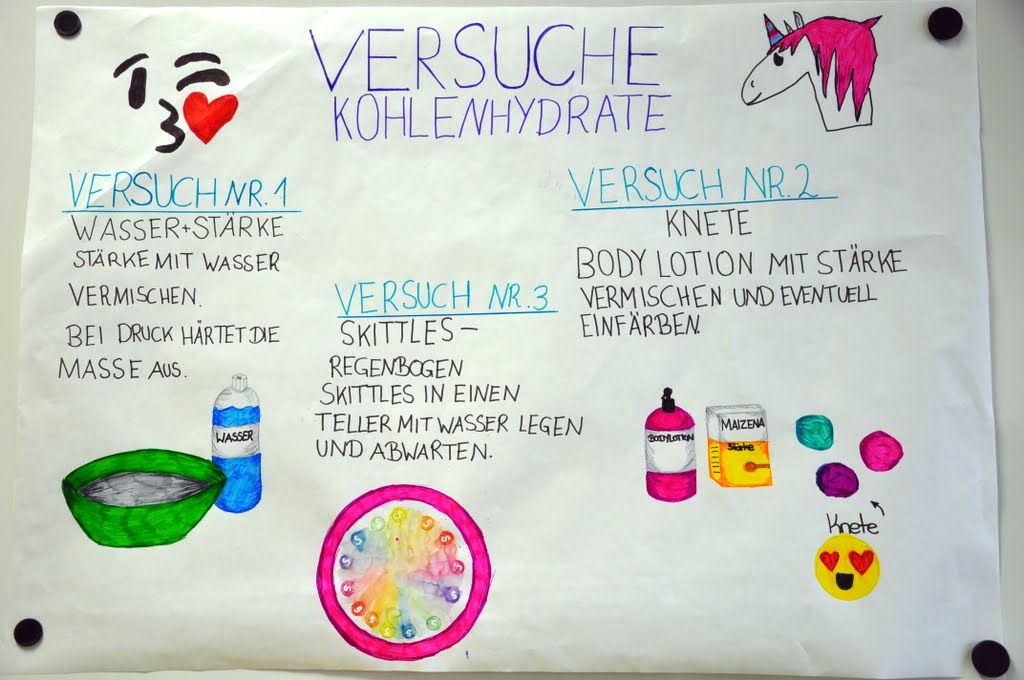 VERSUCHE
KOHLENHYDRATE
VERSUCH NR. 1
WASSER+STÄRKE
STÄRKE MIT WASSER
VERMISCHEN.
BEI DRUCK HÄRTET DIE
MASSE AUS.
WASSER
VERSUCH NR. 3
SKITTLES –
REGENBOGEN
SKITTLES IN EINEN
TELLER MIT WASSER LEGEN
UND ABWARTEN.
S S S S S S S S S S S S S
VERSUCH NR. 2
KNETE
BODY LOTION MIT STÄRKE
VERMISCHEN UND EVENTUELL
EINFÄRBEN.
BODYLOTION
MAIZENA
Stärke
Knete